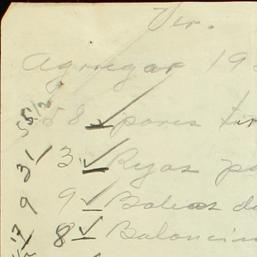 Ver.
Agregar 19
58 ✓ pares tir
3 ✓ Ryas pa
9 9 ✓ Boleas d
17 8 ✓ Balancin